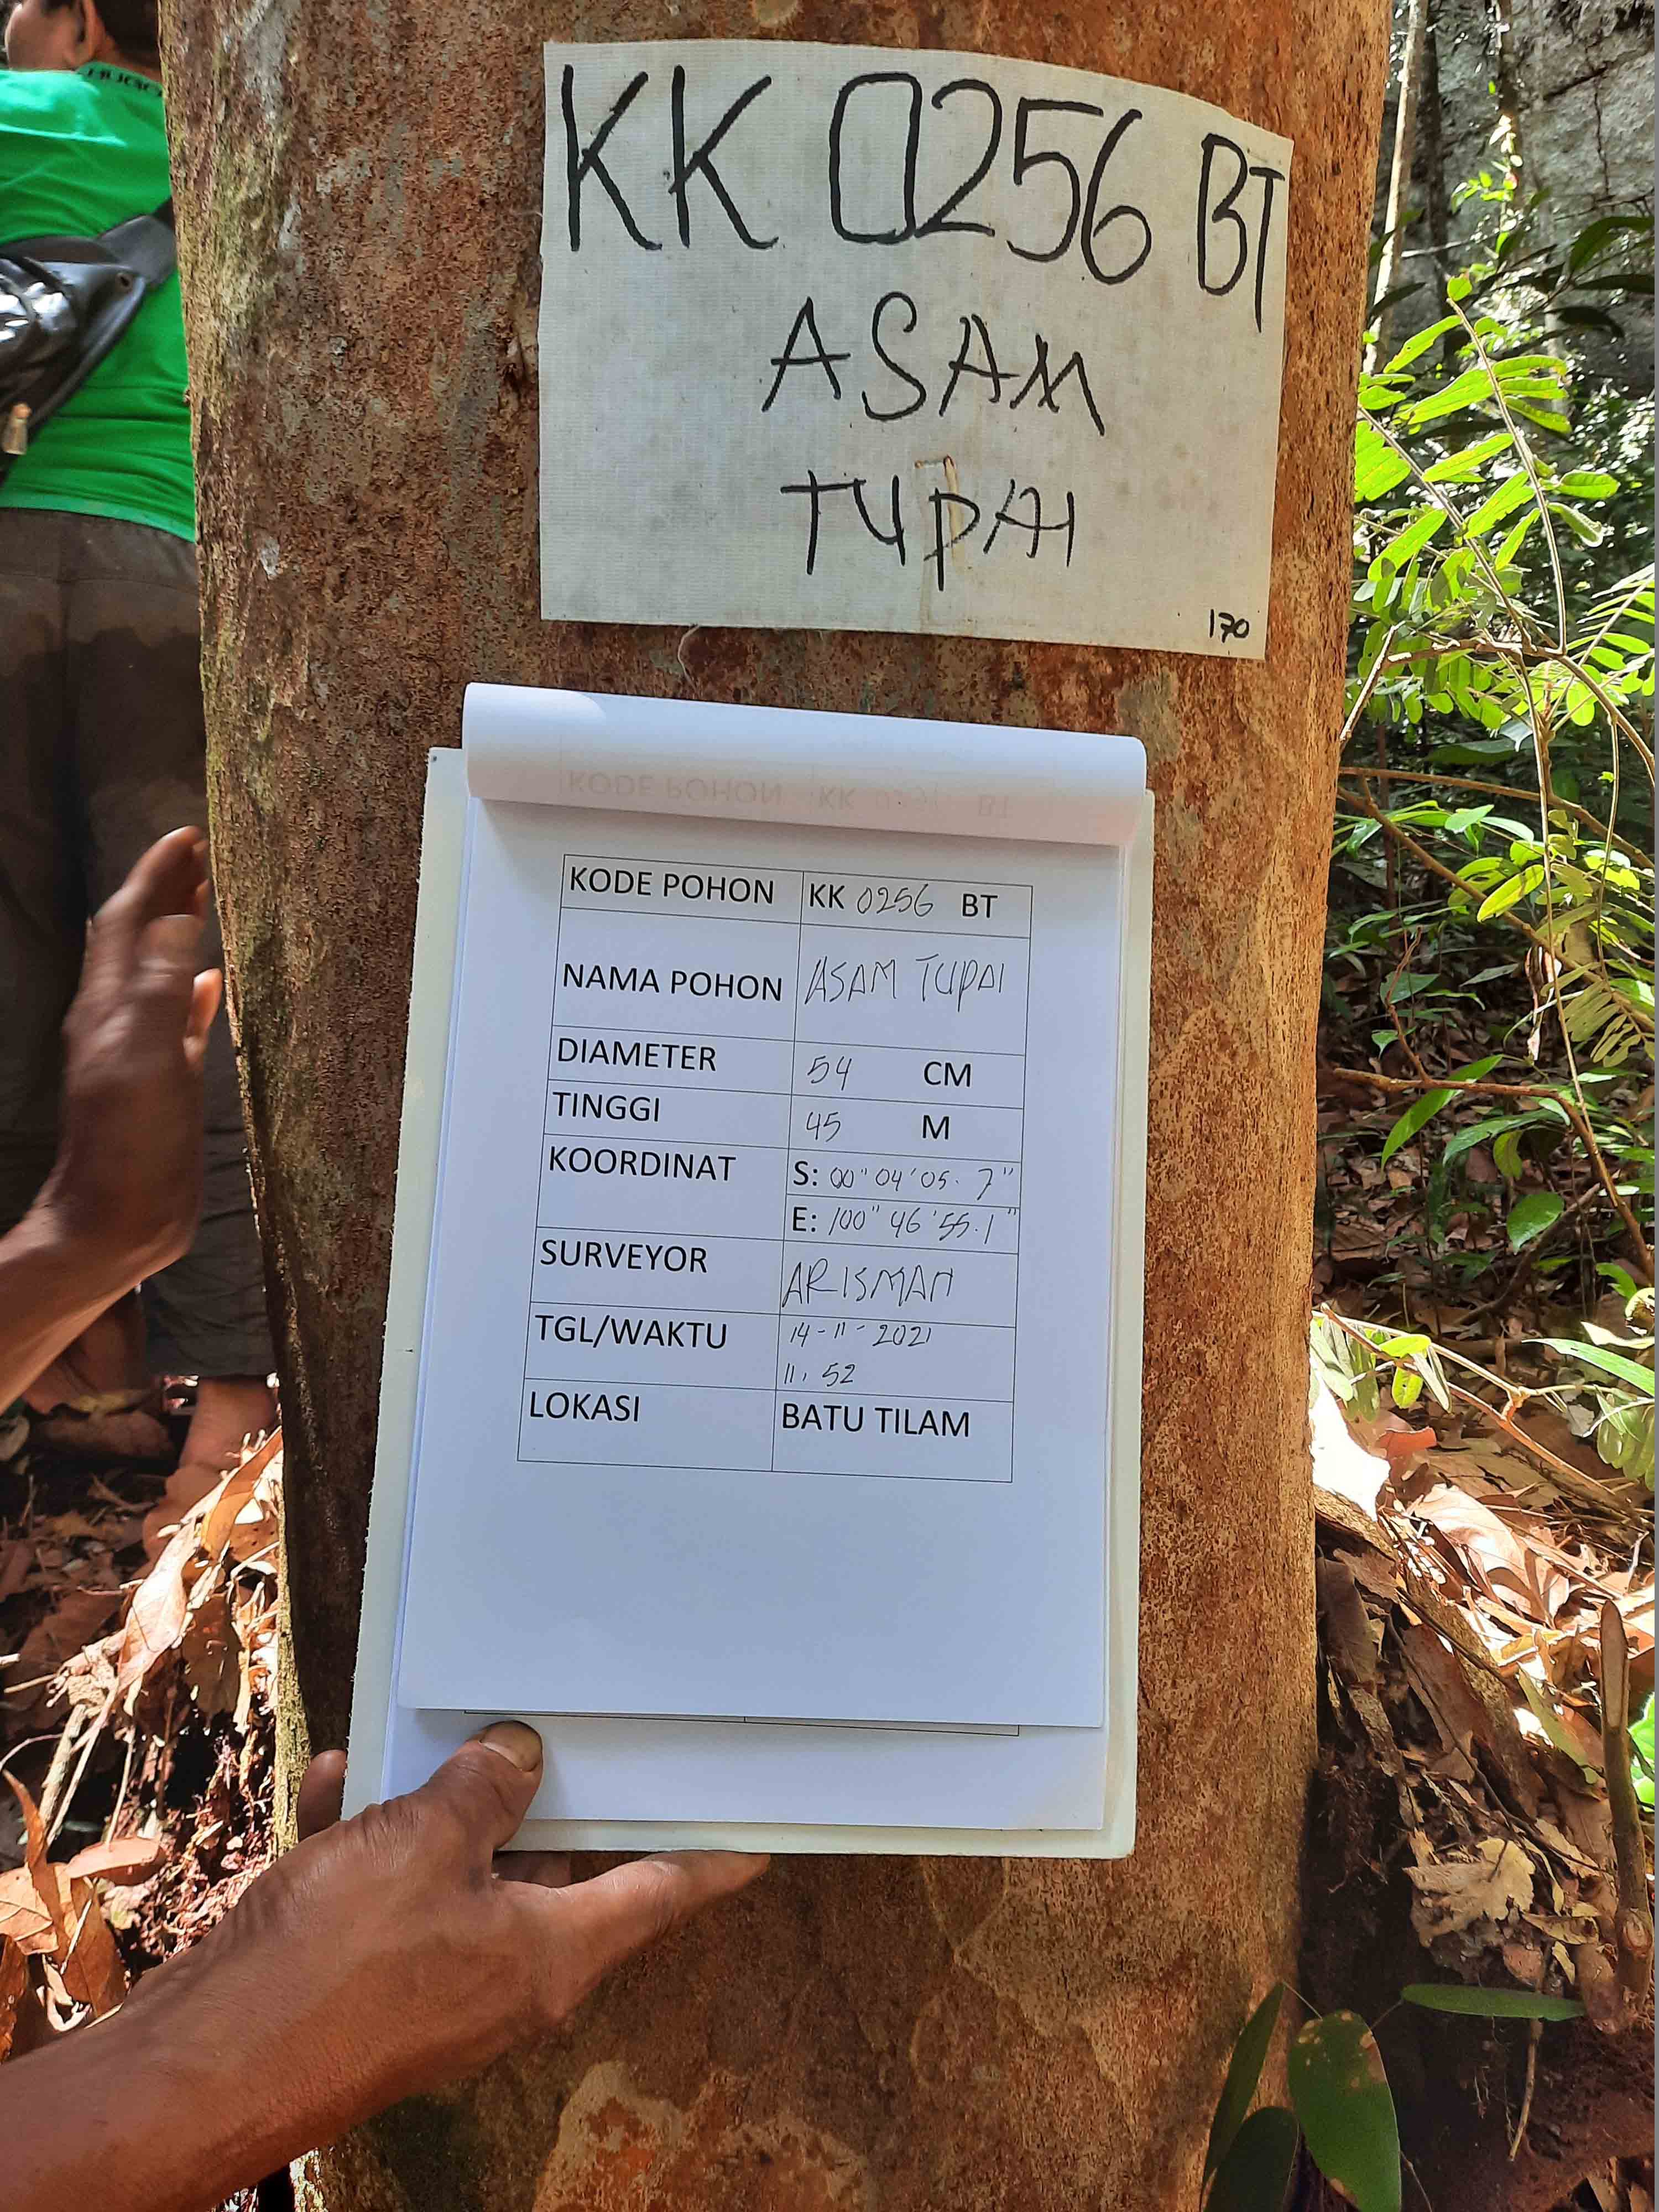 KK 0256 BT
ASAM
TUPAI
170
KODE POHON KK 0256 BT
NAMA POHON ASAM TUPAI
DIAMETER 54 CM
TINGGI 45 M
KOORDINAT S: 00" 04' 05. 7"
E: 100" 46' 55.1"
SURVEYOR ARISMAN
TGL/WAKTU 14-11-2021
11. 52
LOKASI BATU TILAM